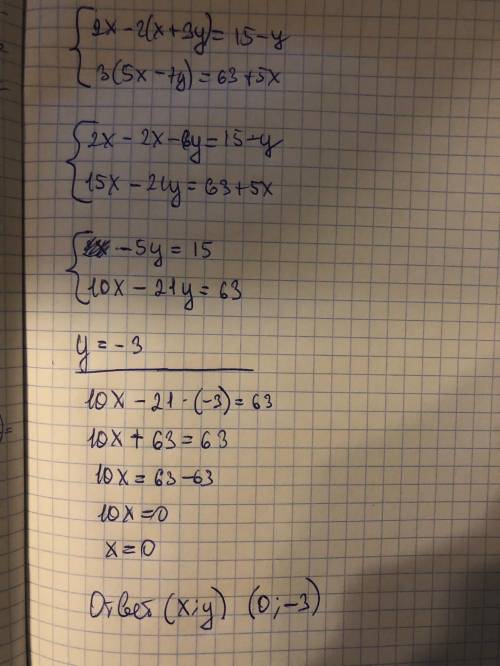 2x - 2(x + 3y) = 15 - y
3(5x - 7y) = 63 + 5x
2x - 2x - 6y = 15 - y
15x - 21y = 63 + 5x
- 5y = 15
10x - 21y = 63
y = - 3
10x - 21 · (-3) = 63
10x + 63 = 63
10x = 63 - 63
10x = 0
x = 0
Ответ (x; y) (0; -3)